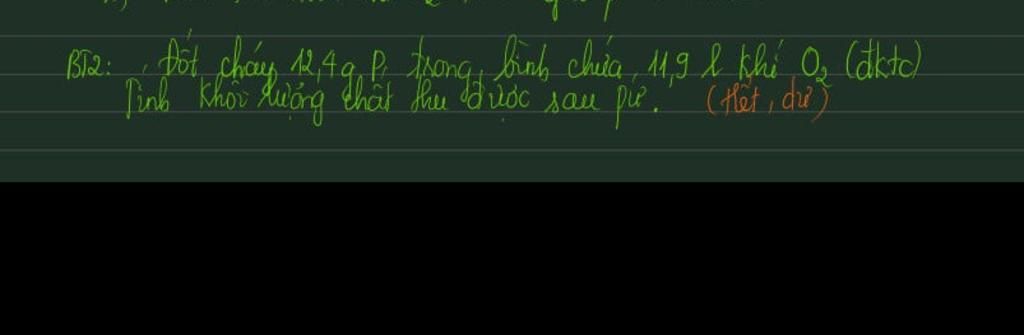 BT2: Đốt cháy 12,4g P trong bình chứa 11,9 l khí O2 (đktc)
Tính khối lượng chất thu được sau pứ. (Hết, dư)